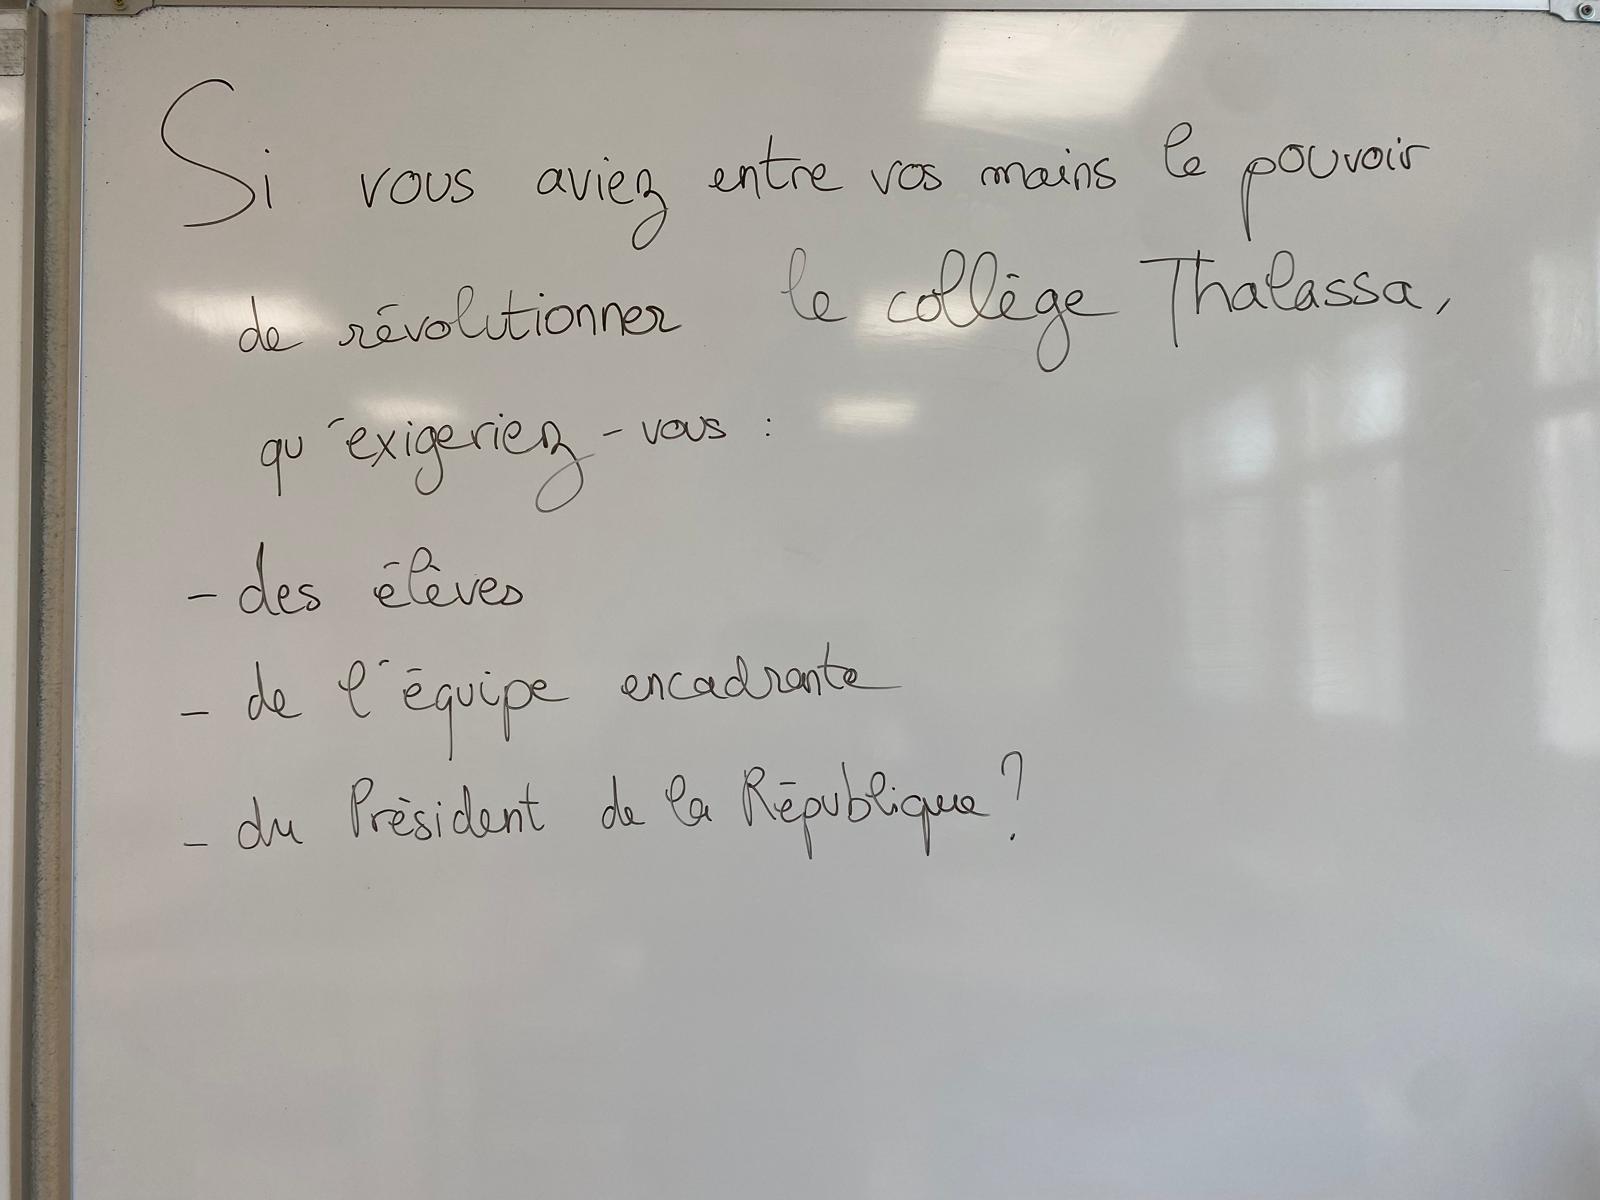 Si vous aviez entre vos mains le pouvoir
de révolutionner le collège Thalassa,
qu'exigeriez-vous :
- des élèves
- de l'équipe encadrante
- du Président de la République ?